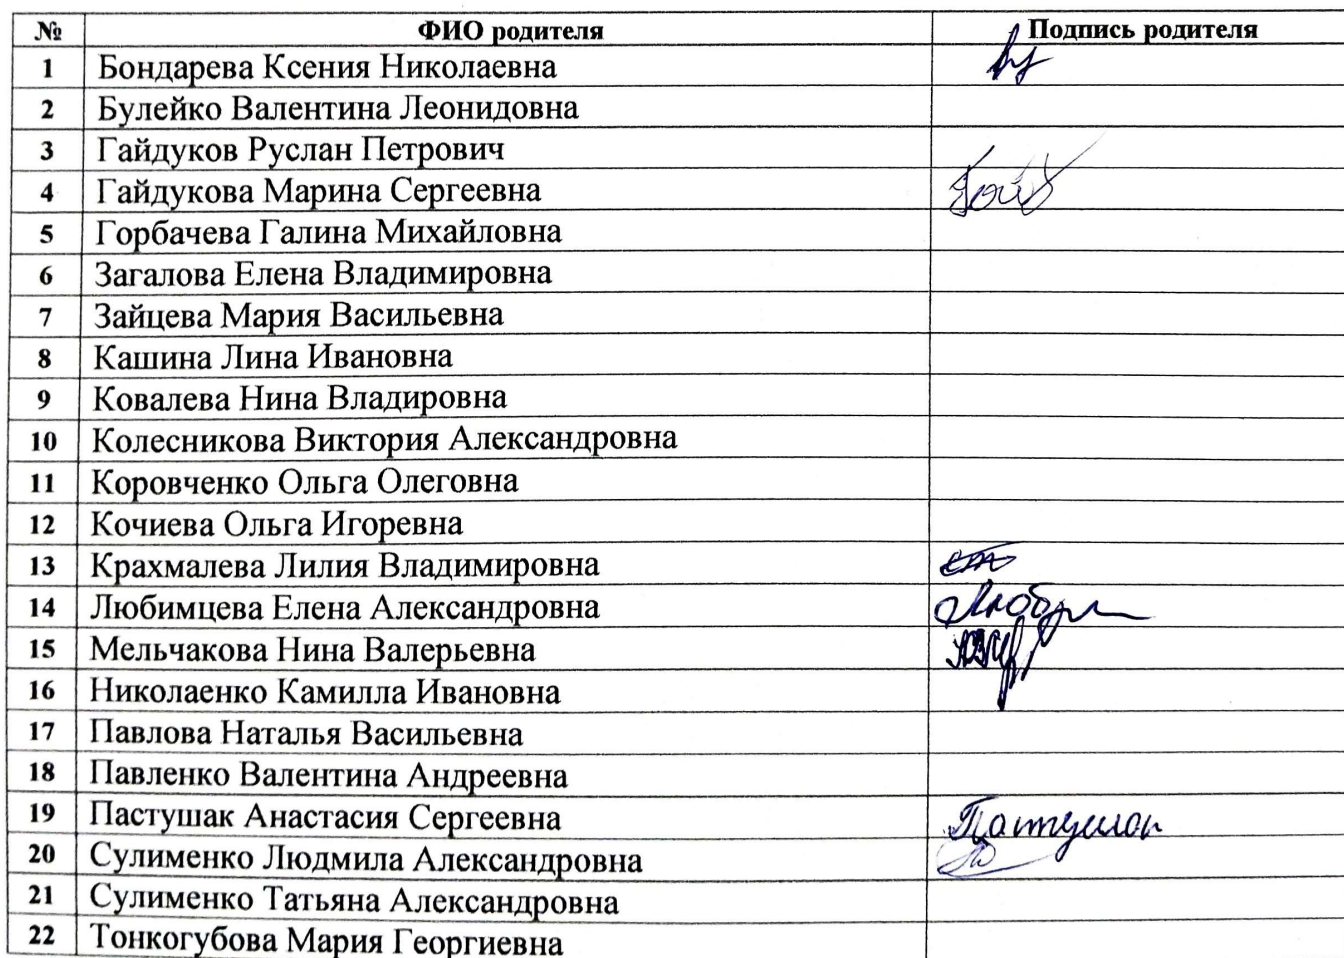 № ФИО родителя Подпись родителя
1 Бондарева Ксения Николаевна
2 Булейко Валентина Леонидовна
3 Гайдуков Руслан Петрович
4 Гайдукова Марина Сергеевна
5 Горбачева Галина Михайловна
6 Загалова Елена Владимировна
7 Зайцева Мария Васильевна
8 Кашина Лина Ивановна
9 Ковалева Нина Владировна
10 Колесникова Виктория Александровна
11 Коровченко Ольга Олеговна
12 Кочиева Ольга Игоревна
13 Крахмалева Лилия Владимировна
14 Любимцева Елена Александровна
15 Мельчакова Нина Валерьевна
16 Николаенко Камилла Ивановна
17 Павлова Наталья Васильевна
18 Павленко Валентина Андреевна
19 Пастушак Анастасия Сергеевна
20 Сулименко Людмила Александровна
21 Сулименко Татьяна Александровна
22 Тонкогубова Мария Георгиевна